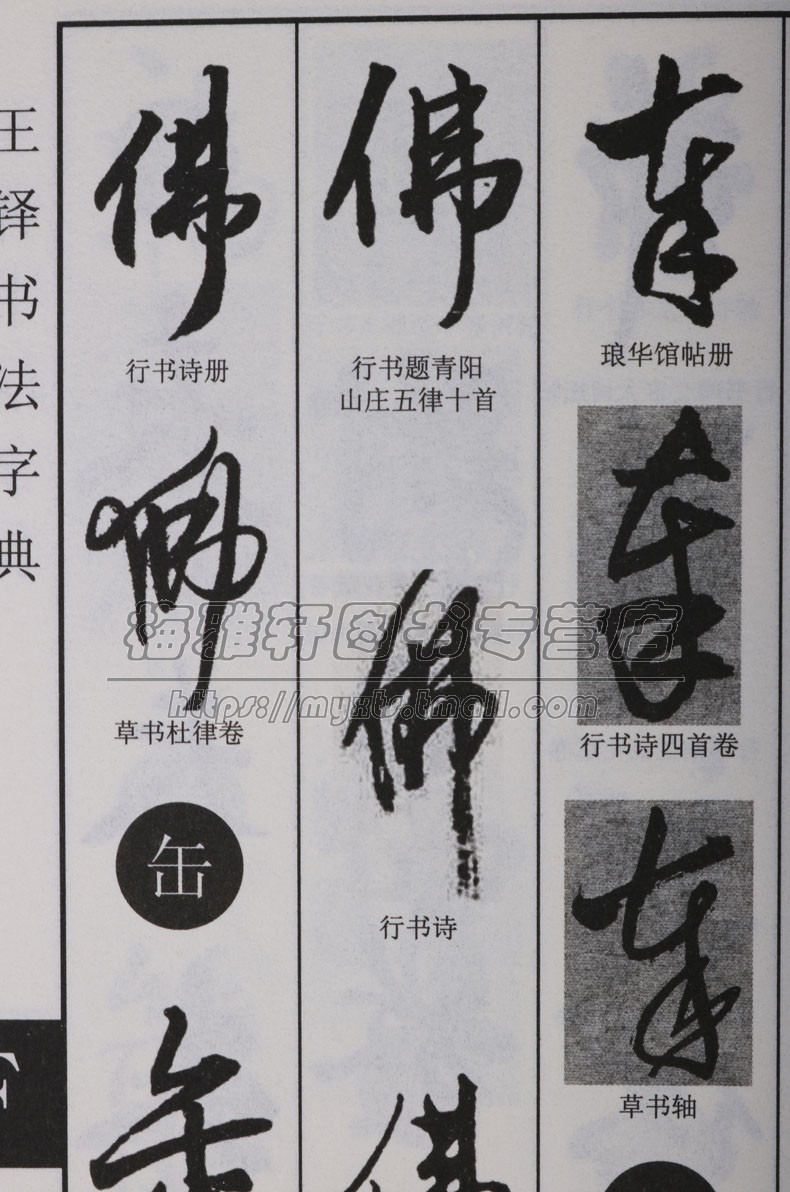 奉
琅华馆帖册
奉
行书诗四首卷
奉
草书轴
佛
行书题青阳
山庄五律十首
佛
行书诗
佛
佛
行书诗册
佛
草书杜律卷
缶
缶
王铎书法字典
F
梅雅轩图书专营店
https://myxts.tmall.com